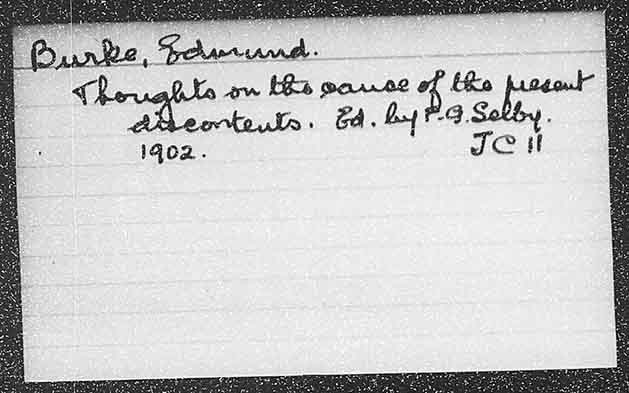 Burke, Edmund.
Thoughts on the cause of the present
discontents. Ed. by F.G. Selby.
1902. JC 11